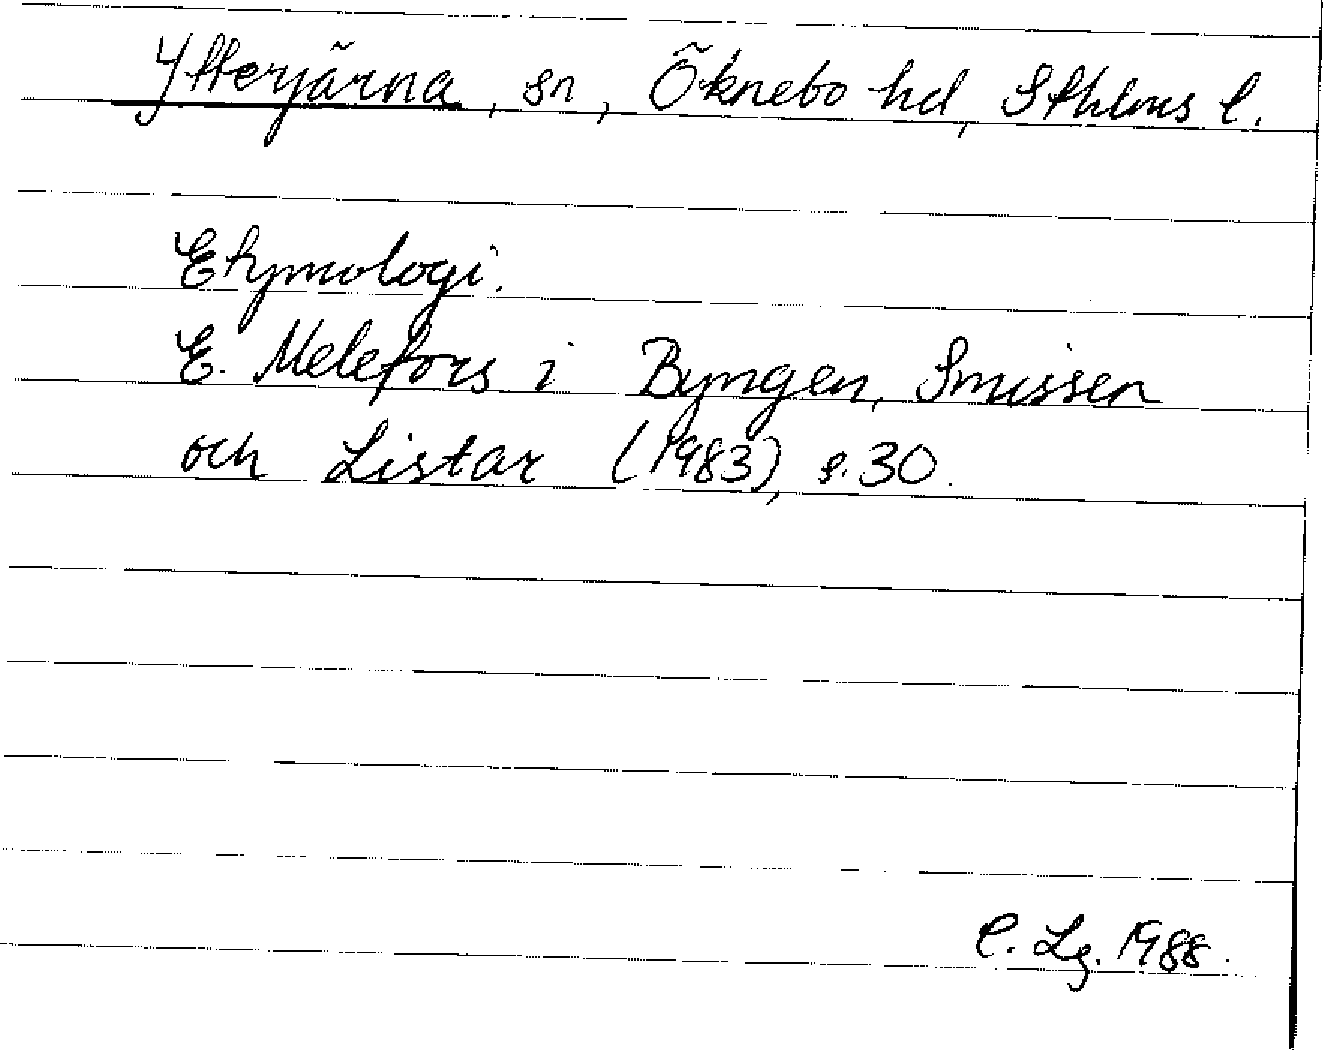 Ytterjärna, sn, Öknebo hd, Sthlms l.
Etymologi.
E. Melefors i Byngen, Smissen
och Listar (1983), s. 30.
C. Lg. 1988.